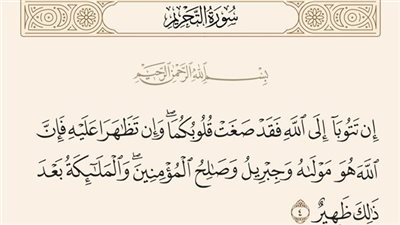 سُورَةُ التَّحْرِيمِ
بِسْمِ اللَّهِ الرَّحْمَٰنِ الرَّحِيمِ
إِن تَتُوبَآ إِلَى اللَّهِ فَقَدْ صَغَتْ قُلُوبُكُمَاۖ وَإِن تَظَٰهَرَا عَلَيْهِ فَإِنَّ
اللَّهَ هُوَ مَوْلَىٰهُ وَجِبْرِيلُ وَصَٰلِحُ الْمُؤْمِنِينَۖ وَالْمَلَٰٓئِكَةُ بَعْدَ
ذَٰلِكَ ظَهِيرٌ ٤